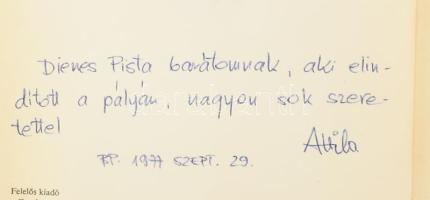 Dienes Pista barátomnak, aki elin-
dított a pályán, nagyon sok szere-
tettel
Attila
BP. 1977 SZEPT. 29.
Felelős kiadó